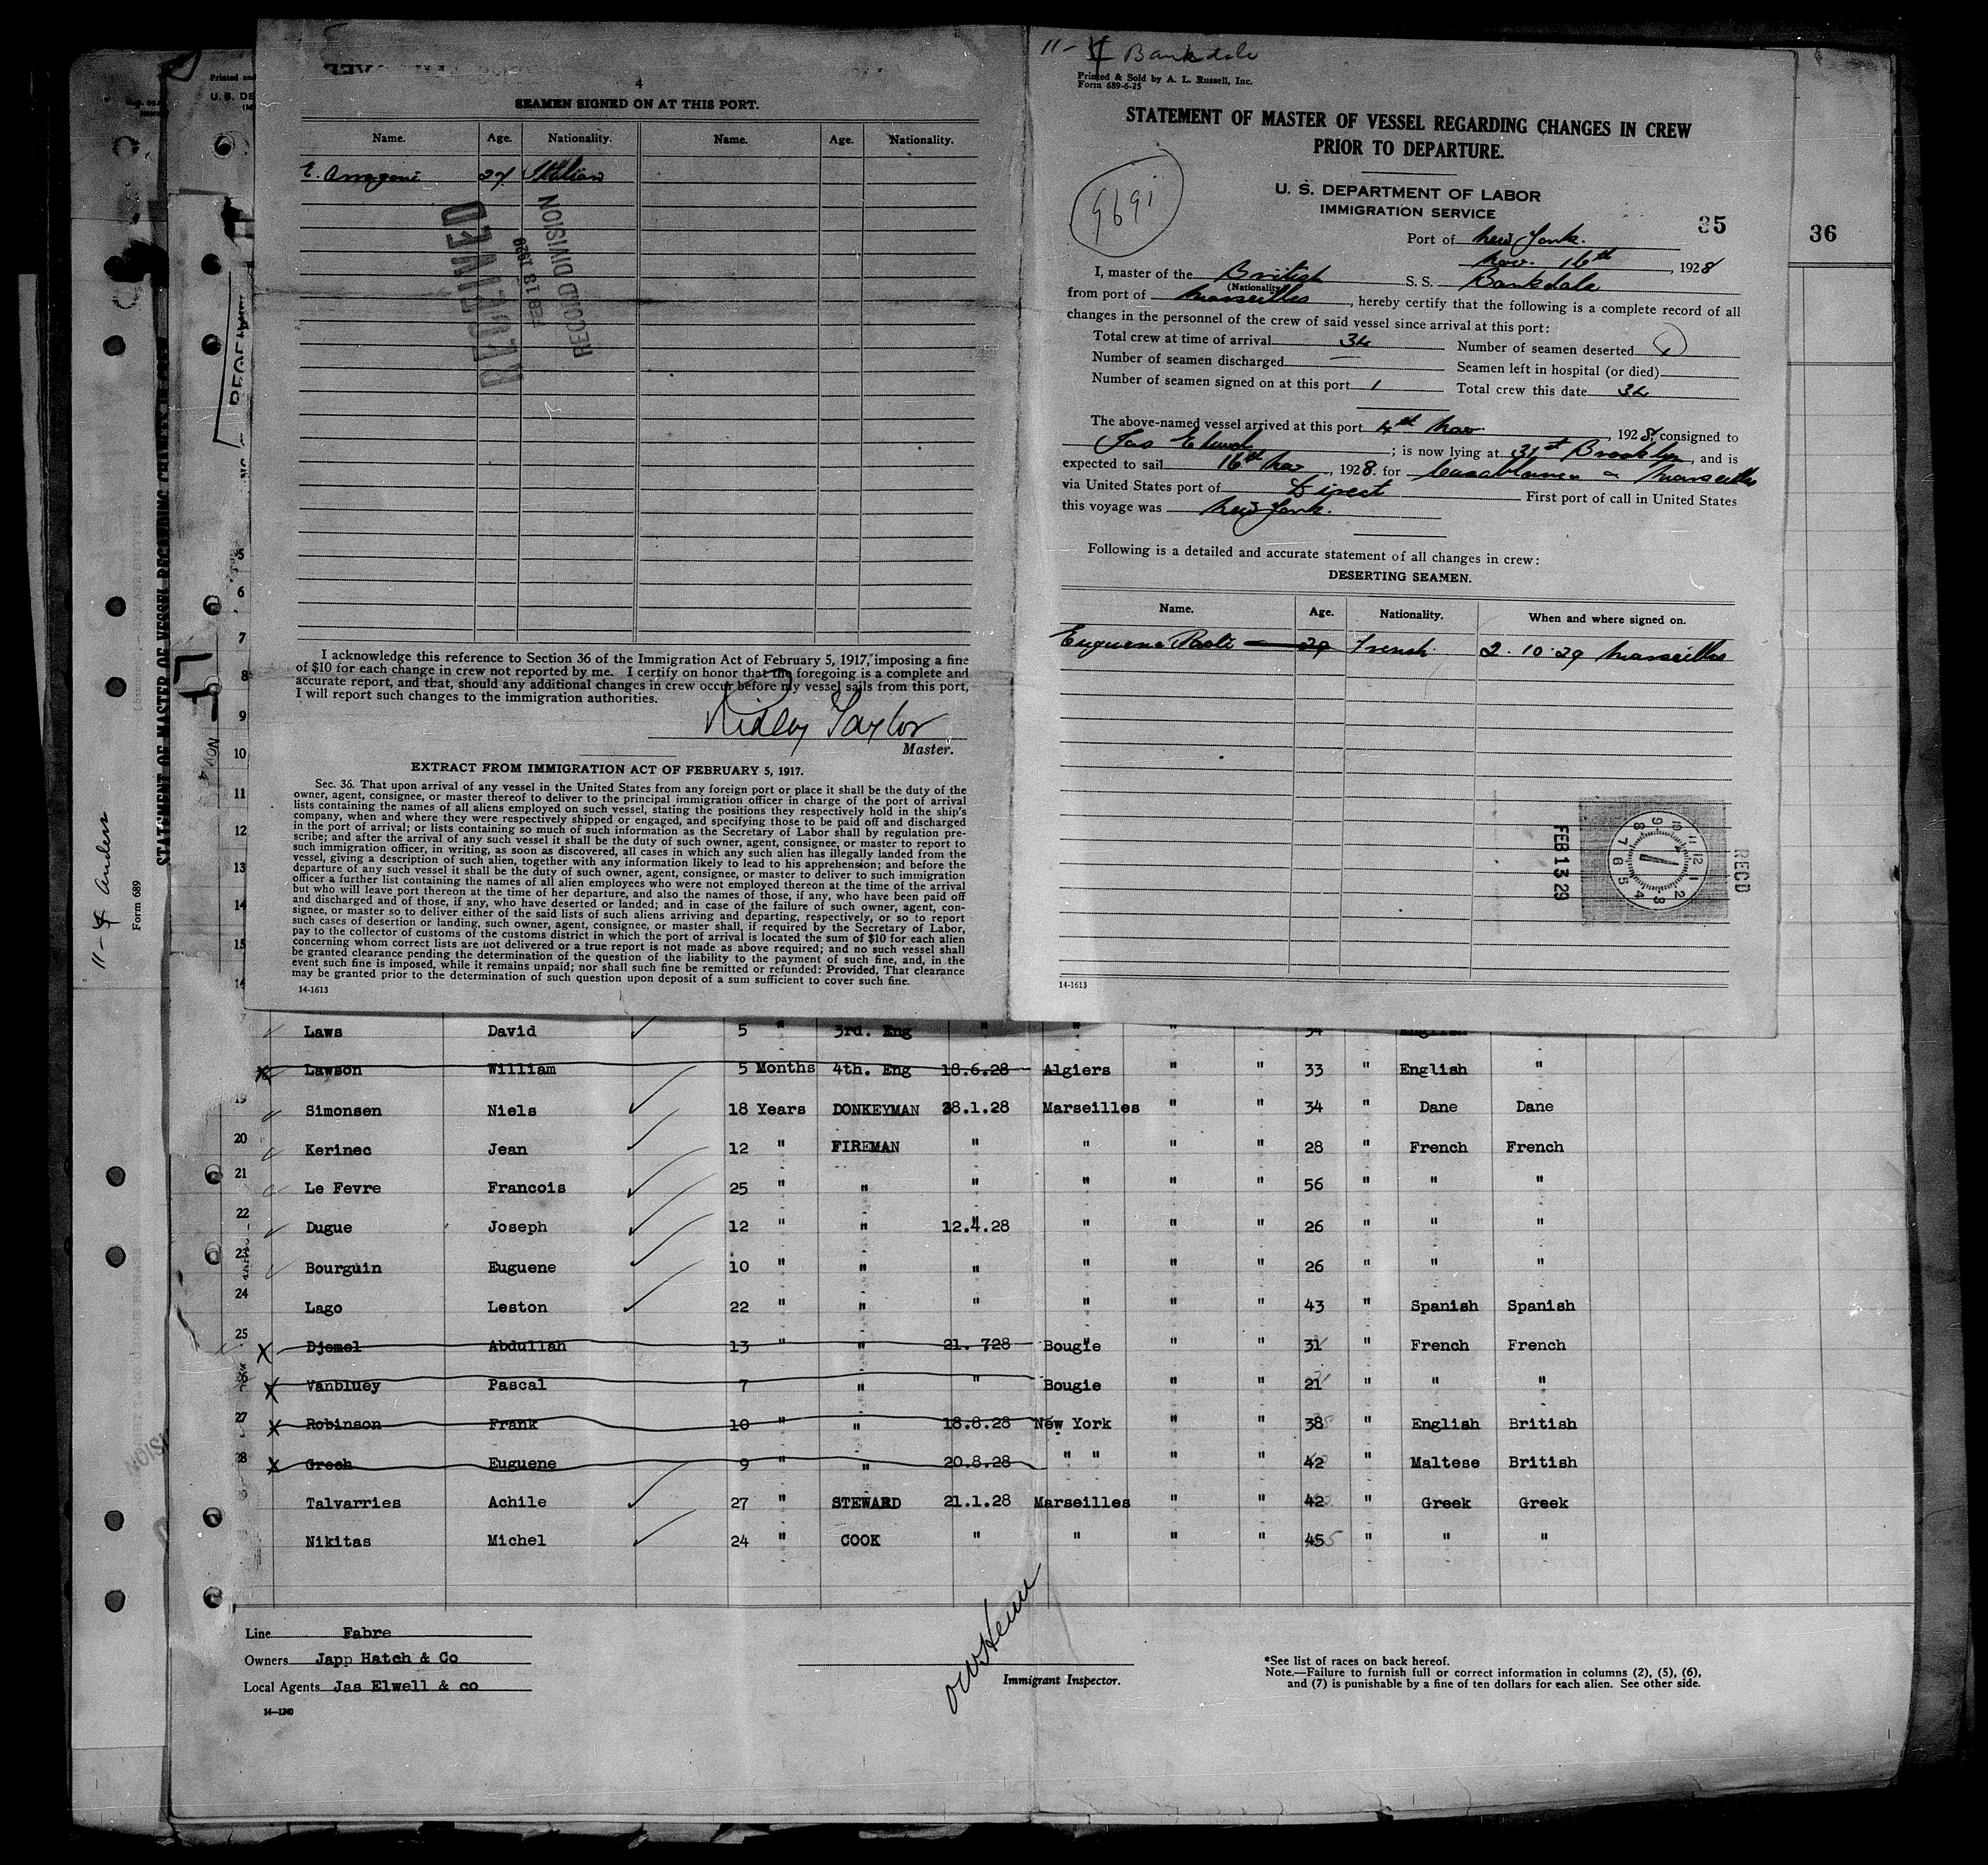 4
SEAMEN SIGNED ON AT THIS PORT.
Name. Age. Nationality. Name. Age. Nationality.
E. 27 Italian
RECEIVED
FEB 18 1929
RECORD DIVISION
I acknowledge this reference to Section 36 of the Immigration Act of February 5, 1917, imposing a fine
of $10 for each change in crew not reported by me. I certify on honor that the foregoing is a complete and
accurate report, and that, should any additional changes in crew occur before my vessel sails from this port,
I will report such changes to the immigration authorities.
Ridley Taylor
Master.
EXTRACT FROM IMMIGRATION ACT OF FEBRUARY 5, 1917.
Sec. 36. That upon arrival of any vessel in the United States from any foreign port or place it shall be the duty of the
owner, agent, consignee, or master thereof to deliver to the principal immigration officer in charge of the port of arrival
lists containing the names of all aliens employed on such vessel, stating the positions they respectively hold in the ship's
company, when and where they were respectively shipped or engaged, and specifying those to be paid off and discharged
in the port of arrival; or lists containing so much of such information as the Secretary of Labor shall by regulation pre-
scribe; and after the arrival of any such vessel it shall be the duty of such owner, agent, consignee, or master to report to
such immigration officer, in writing, as soon as discovered, all cases in which any such alien has illegally landed from the
vessel, giving a description of such alien, together with any information likely to lead to his apprehension; and before the
departure of any such vessel it shall be the duty of such owner, agent, consignee, or master to deliver to such immigration
officer a further list containing the names of all alien employees who were not employed thereon at the time of the arrival
but who will leave port thereon at the time of her departure, and also the names of those, if any, who have been paid off
and discharged and of those, if any, who have deserted or landed; and in case of the failure of such owner, agent, con-
signee, or master so to deliver either of the said lists of such aliens arriving and departing, respectively, or so to report
such cases of desertion or landing, such owner, agent, consignee, or master shall, if required by the Secretary of Labor,
pay to the collector of customs of the customs district in which the port of arrival is located the sum of $10 for each alien
concerning whom correct lists are not delivered or a true report is not made as above required; and no such vessel shall
be granted clearance pending the determination of the question of the liability to the payment of such fine, and, in the
event such fine is imposed, while it remains unpaid; nor shall such fine be remitted or refunded: Provided, That clearance
may be granted prior to the determination of such question upon deposit of a sum sufficient to cover such fine.
14-1613
11-4 Bankdale
Printed & Sold by A. L. Russell, Inc.
Form 689-6-25
STATEMENT OF MASTER OF VESSEL REGARDING CHANGES IN CREW
PRIOR TO DEPARTURE.
U. S. DEPARTMENT OF LABOR
IMMIGRATION SERVICE
35
36
Port of New York.
Nov. 16th, 1928
I, master of the British S. S. Bankdale
(Nationality)
from port of Marseilles, hereby certify that the following is a complete record of all
changes in the personnel of the crew of said vessel since arrival at this port:
Total crew at time of arrival 34 Number of seamen deserted 1
Number of seamen discharged — Seamen left in hospital (or died)
Number of seamen signed on at this port 1 Total crew this date 34
The above-named vessel arrived at this port 4th Nov, 1928, consigned to
Jas Elwell; is now lying at 31st Brooklyn, and is
expected to sail 16th Nov, 1928. for Casablanca & Marseilles
via United States port of Direct First port of call in United States
this voyage was New York.
Following is a detailed and accurate statement of all changes in crew:
DESERTING SEAMEN.
Name. Age. Nationality. When and where signed on.
Euguene 29 French 2.10.29 Marseilles
RECD
FEB 13 29
14-1613
STATEMENT OF MASTER OF VESSEL REGARDING CHANGES IN CREW
Form 689
NOV 4
5
6
7
8
9
10
11
12
13
14
15
Laws David 5 " 3rd. Eng " " " " 34 " English
Lawson William 5 Months 4th. Eng 18.6.28 Algiers " " 33 " English "
19 Simonsen Niels 18 Years DONKEYMAN 28.1.28 Marseilles " " 34 " Dane Dane
20 Kerinec Jean 12 " FIREMAN " " " " 28 " French French
21 Le Fevre Francois 25 " " " " " " 56 " " "
22 Dugue Joseph 12 " " 12.4.28 " " " 26 " " "
23 Bourguin Euguene 10 " " " " " " 26 " " "
24 Lago Leston 22 " " " " " " 43 " Spanish Spanish
25 Djemel Abdullah 13 " " 21. 728 Bougie " " 31 " French French
26 Vanbluey Pascal 7 " " Bougie " " 21 " " "
27 Robinson Frank 10 " " 18.8.28 New York " " 38 " English British
28 Grech Euguene 9 " " 20.8.28 " " " " 42 " Maltese British
Talvarries Achile 27 " STEWARD 21.1.28 Marseilles " " 42 " Greek Greek
Nikitas Michel 24 " COOK " " " " 45 " " "
Line Fabre
Owners Japp Hatch & Co
Local Agents Jas Elwell & co
14-1240
Immigrant Inspector.
*See list of races on back hereof.
Note.—Failure to furnish full or correct information in columns (2), (5), (6),
and (7) is punishable by a fine of ten dollars for each alien. See other side.